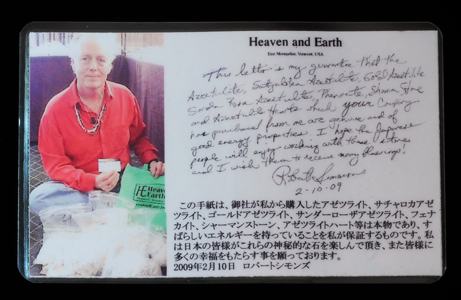 Heaven and Earth
East Montpelier, Vermont, USA
This letter is my guarantee that the
Azeztulite, Satyaloka Azeztulite, Gold Azeztulite
Sanda Rosa Azeztulite, Phenacite, Shaman Stone
and Azeztulite Hearts which your Company
has purchased from me are genuine and of
good energy properties. I hope the Japanese
people will enjoy working with these stones
and I wish them to receive many blessings!
Robert Simmons
2-10-09
Heaven
Earth
この手紙は、御社が私から購入したアゼツライト、サチャロカアゼ
ツライト、ゴールドアゼツライト、サンダーローザアゼツライト、フェナ
カイト、シャーマンストーン、アゼツライトハート等は本物であり、す
ばらしいエネルギーを持っていることを私が保証するものです。私
は日本の皆様がこれらの神秘的な石を楽しんで頂き、また皆様に
多くの幸福をもたらす事を願っております。
2009年2月10日 ロバートシモンズ